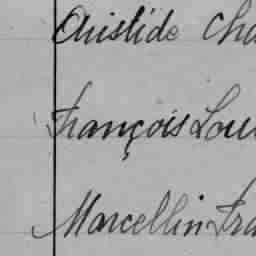 Aristide Cha
François Lou
Marcellin Fra